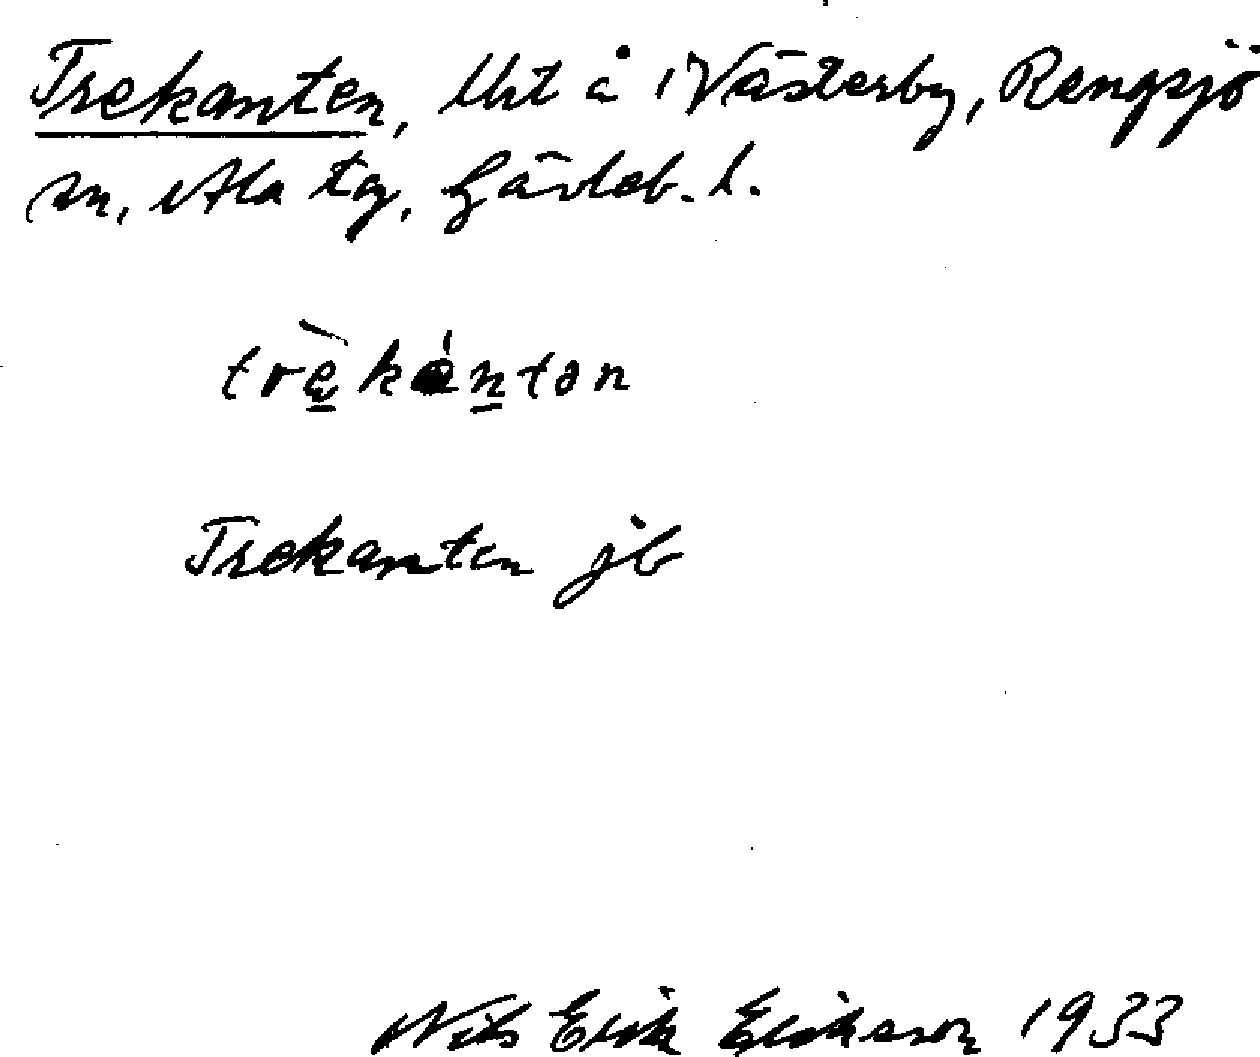 Trekanten, lht å Västerby, Rengsjö
sn, Ala tg, Gävleb. l.
trèkántən
Trekanten jb
Nils Erik Erikson 1933